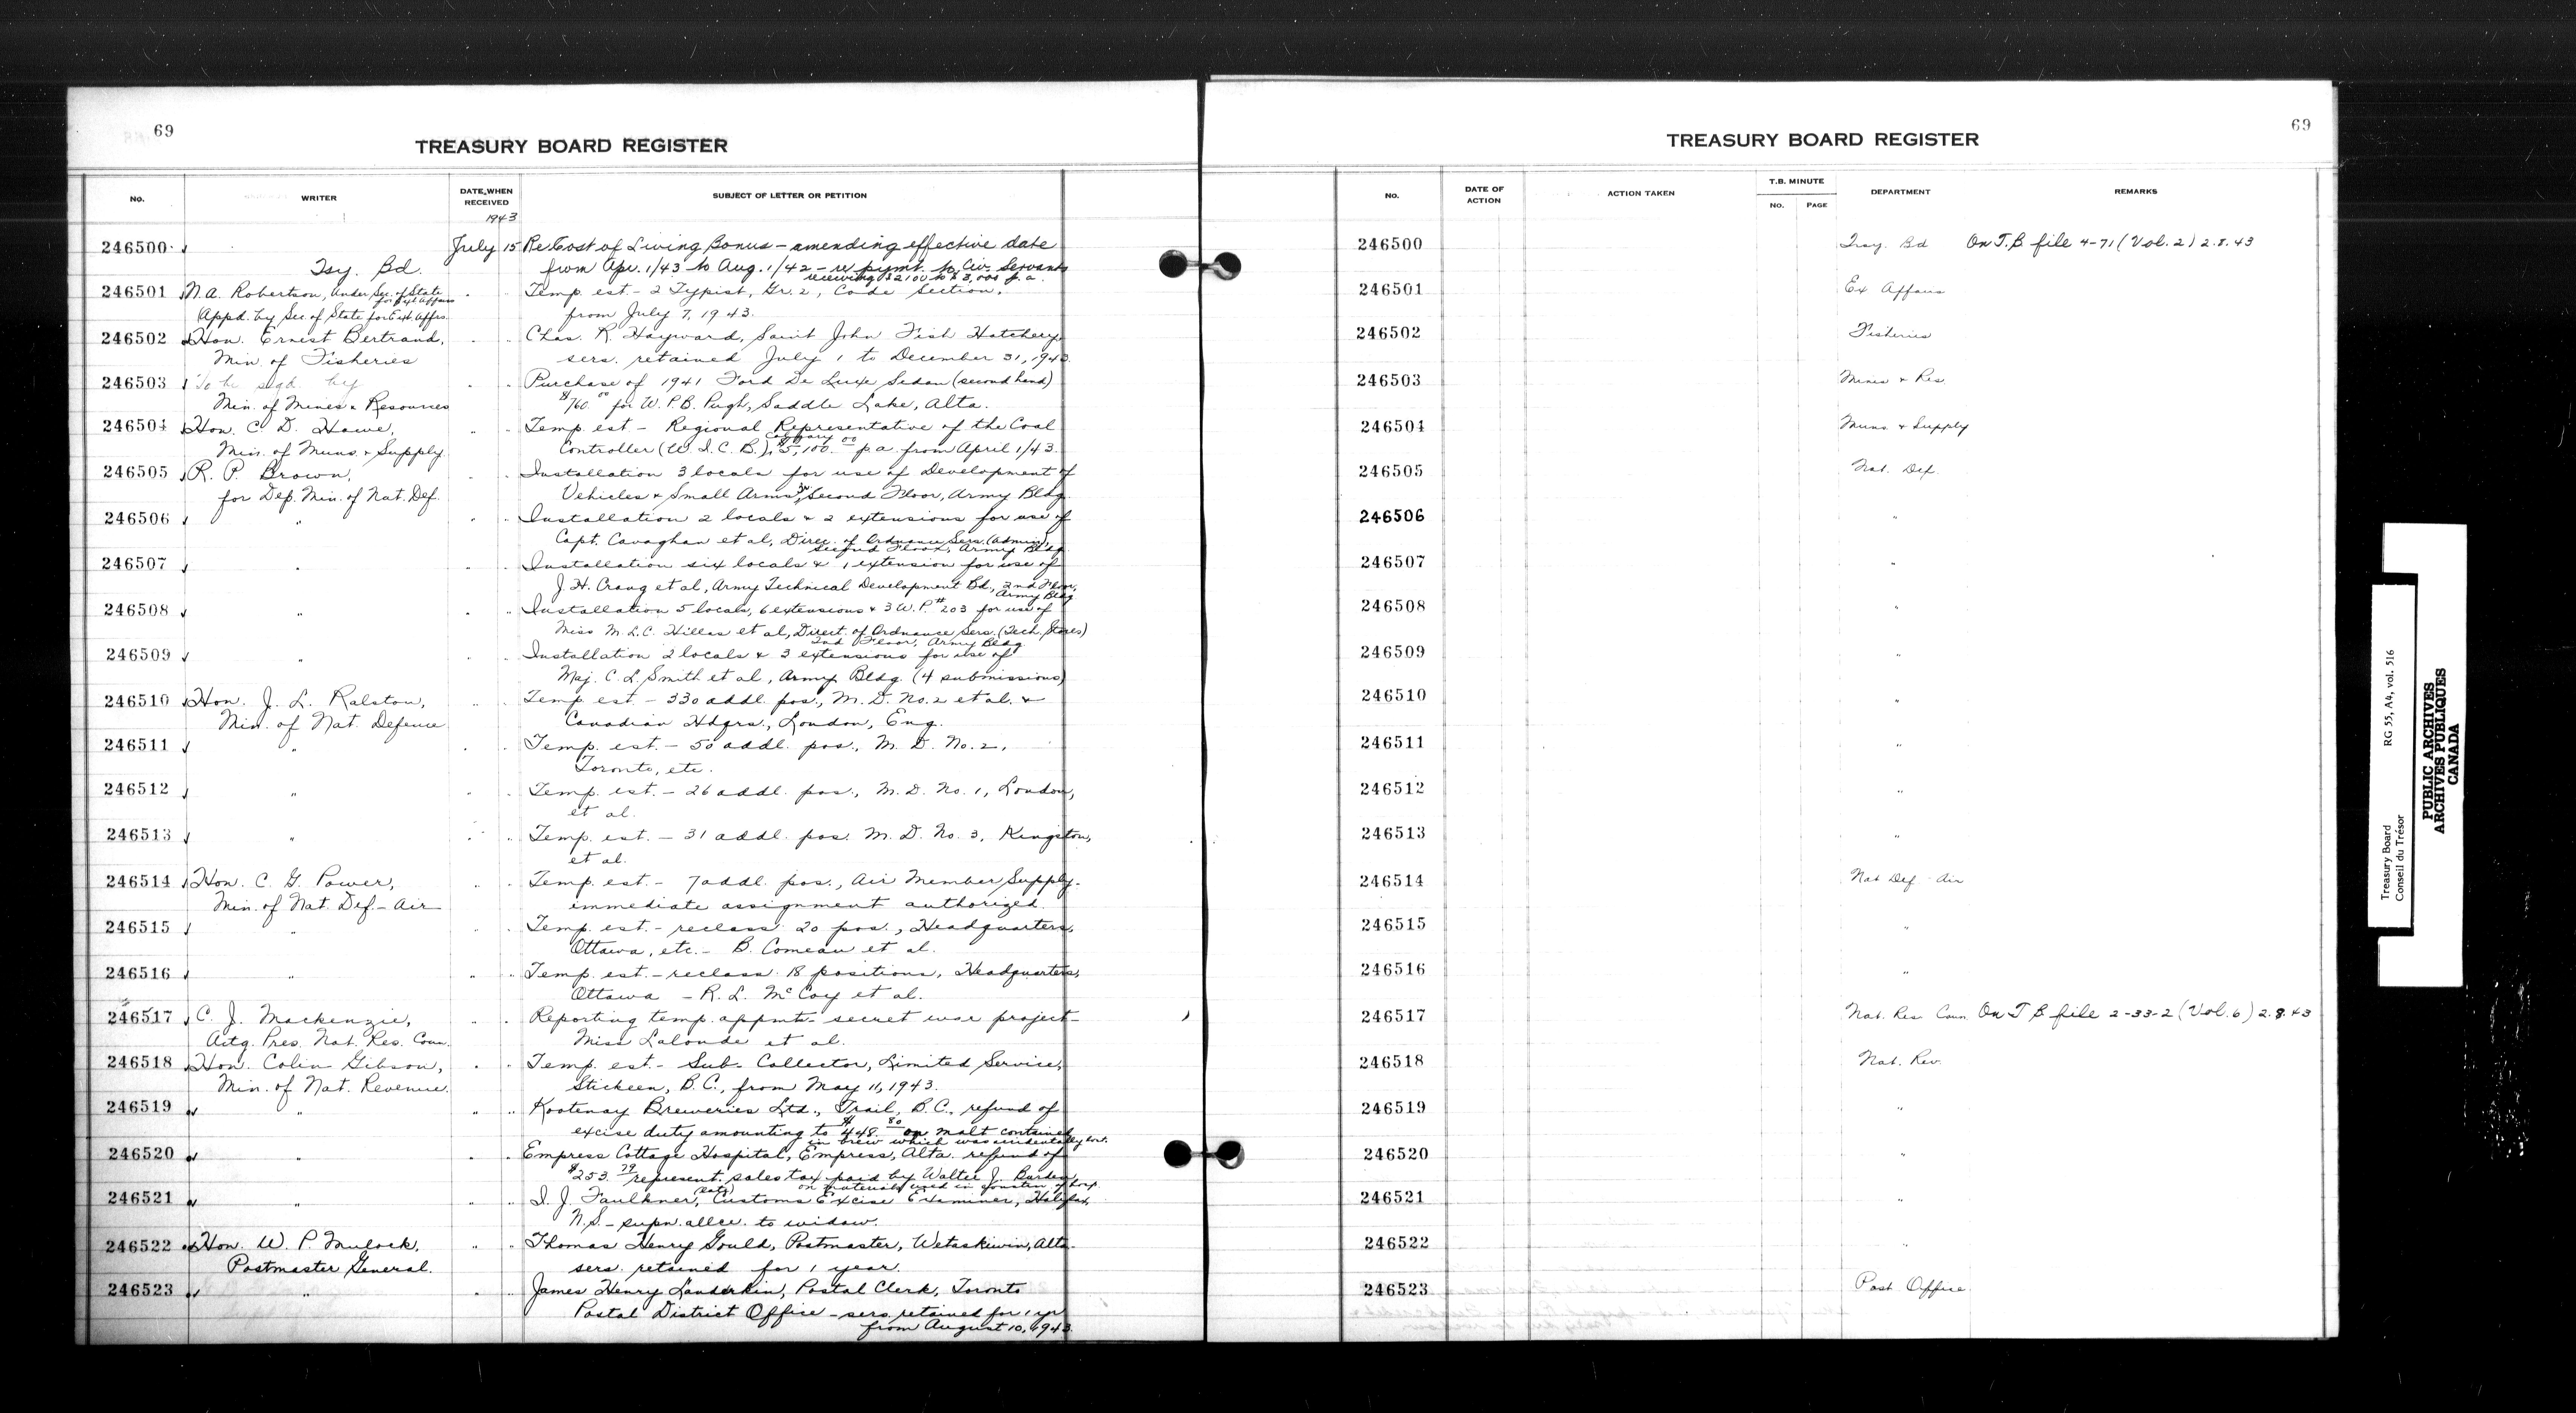 69
TREASURY BOARD REGISTER
No.
WRITER
DATE WHEN RECEIVED
SUBJECT OF LETTER OR PETITION
1943
246500 July 15 Re Cost of Living Bonus - amending effective date
Tsy. Bd. from Apr. 1/43 to Aug. 1/42 - re pymt. to Civ. Servants
receiving $2100 to $3,000 p.a.
246501 N.A. Robertson, Under Sec. of State for Ext Affairs " " Temp. est. - 2 Typist, Gr. 2, Code Section,
(Appd. by Sec. of State for Ext. Affrs. from July 7, 1943.
246502 Hon. Ernest Bertrand, " " Chas. R. Hayward, Saint John Fish Hatchery
Min. of Fisheries sers. retained July 1 to December 31, 1943.
246503 To be sgd. by " " Purchase of 1941 Ford De Luxe Sedan (second hand)
Min. of Mines & Resources $760.00 for W.P.B. Pugh, Saddle Lake, Alta.
246504 Hon. C. D. Howe, " " Temp. est - Regional Representative of the Coal
Min. of Muns. & Supply Controller (W.I.C.B.), Calgary $5,100.00 p.a. from April 1/43.
246505 R. P. Brown, " " Installation 3 locals for use of Development of
for Dep. Min. of Nat. Def. Vehicles & Small Arms, Second Floor, Army Bldg.
246506 " " " Installation 2 locals & 2 extensions for use of
Capt. Cavaghan et al, Direc. of Ordnance Sers. (Admin),
Second Floor, Army Bldg.
246507 " " " Installation six locals & 1 extension for use of
J. H. Craug et al, Army Technical Development Bd., 2nd Floor,
Army Bldg.
246508 " " " Installation 5 locals, 6 extensions & 3 W.P. #203 for use of
Miss M.L.C. Hillas et al, Direct. of Ordnance Sers. (Tech. Stores)
2nd Floor, Army Bldg.
246509 " " " Installation 2 locals & 3 extensions for use of
Maj. C. L. Smith et al, Army Bldg. (4 submissions)
246510 Hon. J. L. Ralston, " " Temp. est. - 330 addl. pos., M. D. No. 2 et al. &
Min. of Nat. Defence Canadian Hdqrs., London, Eng.
246511 " " " Temp. est. - 50 addl. pos., M. D. No. 2,
Toronto, etc.
246512 " " " Temp. est. - 26 addl. pos., M. D. No. 1, London,
et al.
246513 " " " Temp. est. - 31 addl. pos. M. D. No. 3, Kingston,
et al.
246514 Hon. C. G. Power, " " Temp. est. - 7 addl. pos., Air Member Supply-
Min. of Nat. Def. - Air immediate assignment authorized.
246515 " " " Temp. est. - reclass. 20 pos., Headquarters,
Ottawa, etc. - B. Comeau et al.
246516 " " " Temp. est. - reclass. 18 positions, Headquarters,
Ottawa - R. L. McCoy et al.
246517 C. J. Mackenzie, " " Reporting temp. appmt. - secret war project -
Actg. Pres. Nat. Res. Coun. Miss Lalonde et al.
246518 Hon. Colin Gibson, " " Temp. est. - Sub-Collector, Limited Service,
Min. of Nat. Revenue. Stickeen, B.C., from May 11, 1943.
246519 " " " Kootenay Breweries Ltd., Trail, B.C., refund of
excise duty amounting to $448.80 on malt contained
in brew which was accidentally lost.
246520 " " " Empress Cottage Hospital, Empress, Alta. refund of
$253.79 represent. sales tax paid by Walter J.
on materials used in constn of hosp.
246521 " " " I. J. Faulkner, (late) Customs Excise Examiner, Halifax,
N.S. - supn. allce. to widow.
246522 Hon. W. P. Mulock, " " Thomas Henry Gould, Postmaster, Wetaskiwin, Alta.
Postmaster General. sers. retained for 1 year.
246523 " " " James Henry Landerkin, Postal Clerk, Toronto
Postal District Office - sers. retained for 1 yr
from August 10, 1943.
69
TREASURY BOARD REGISTER
No.
DATE OF ACTION
ACTION TAKEN
T.B. MINUTE
No. PAGE
DEPARTMENT
REMARKS
246500 Tsy. Bd On T.B file 4-71 (Vol. 2) 2.8.43
246501 Ex Affairs
246502 Fisheries
246503 Mines & Res.
246504 Muns. & Supply
246505 Nat. Def.
246506 "
246507 "
246508 "
246509 "
246510 "
246511 "
246512 "
246513 "
246514 Nat Def - Air
246515 "
246516 "
246517 Nat. Res Coun. On T B file 2-33-2 (Vol. 6) 2.8.43
246518 Nat. Rev.
246519 "
246520 "
246521 "
246522 "
246523 Post Office
Treasury Board RG 55, A4, vol. 516
Conseil du Trésor
PUBLIC ARCHIVES
ARCHIVES PUBLIQUES
CANADA